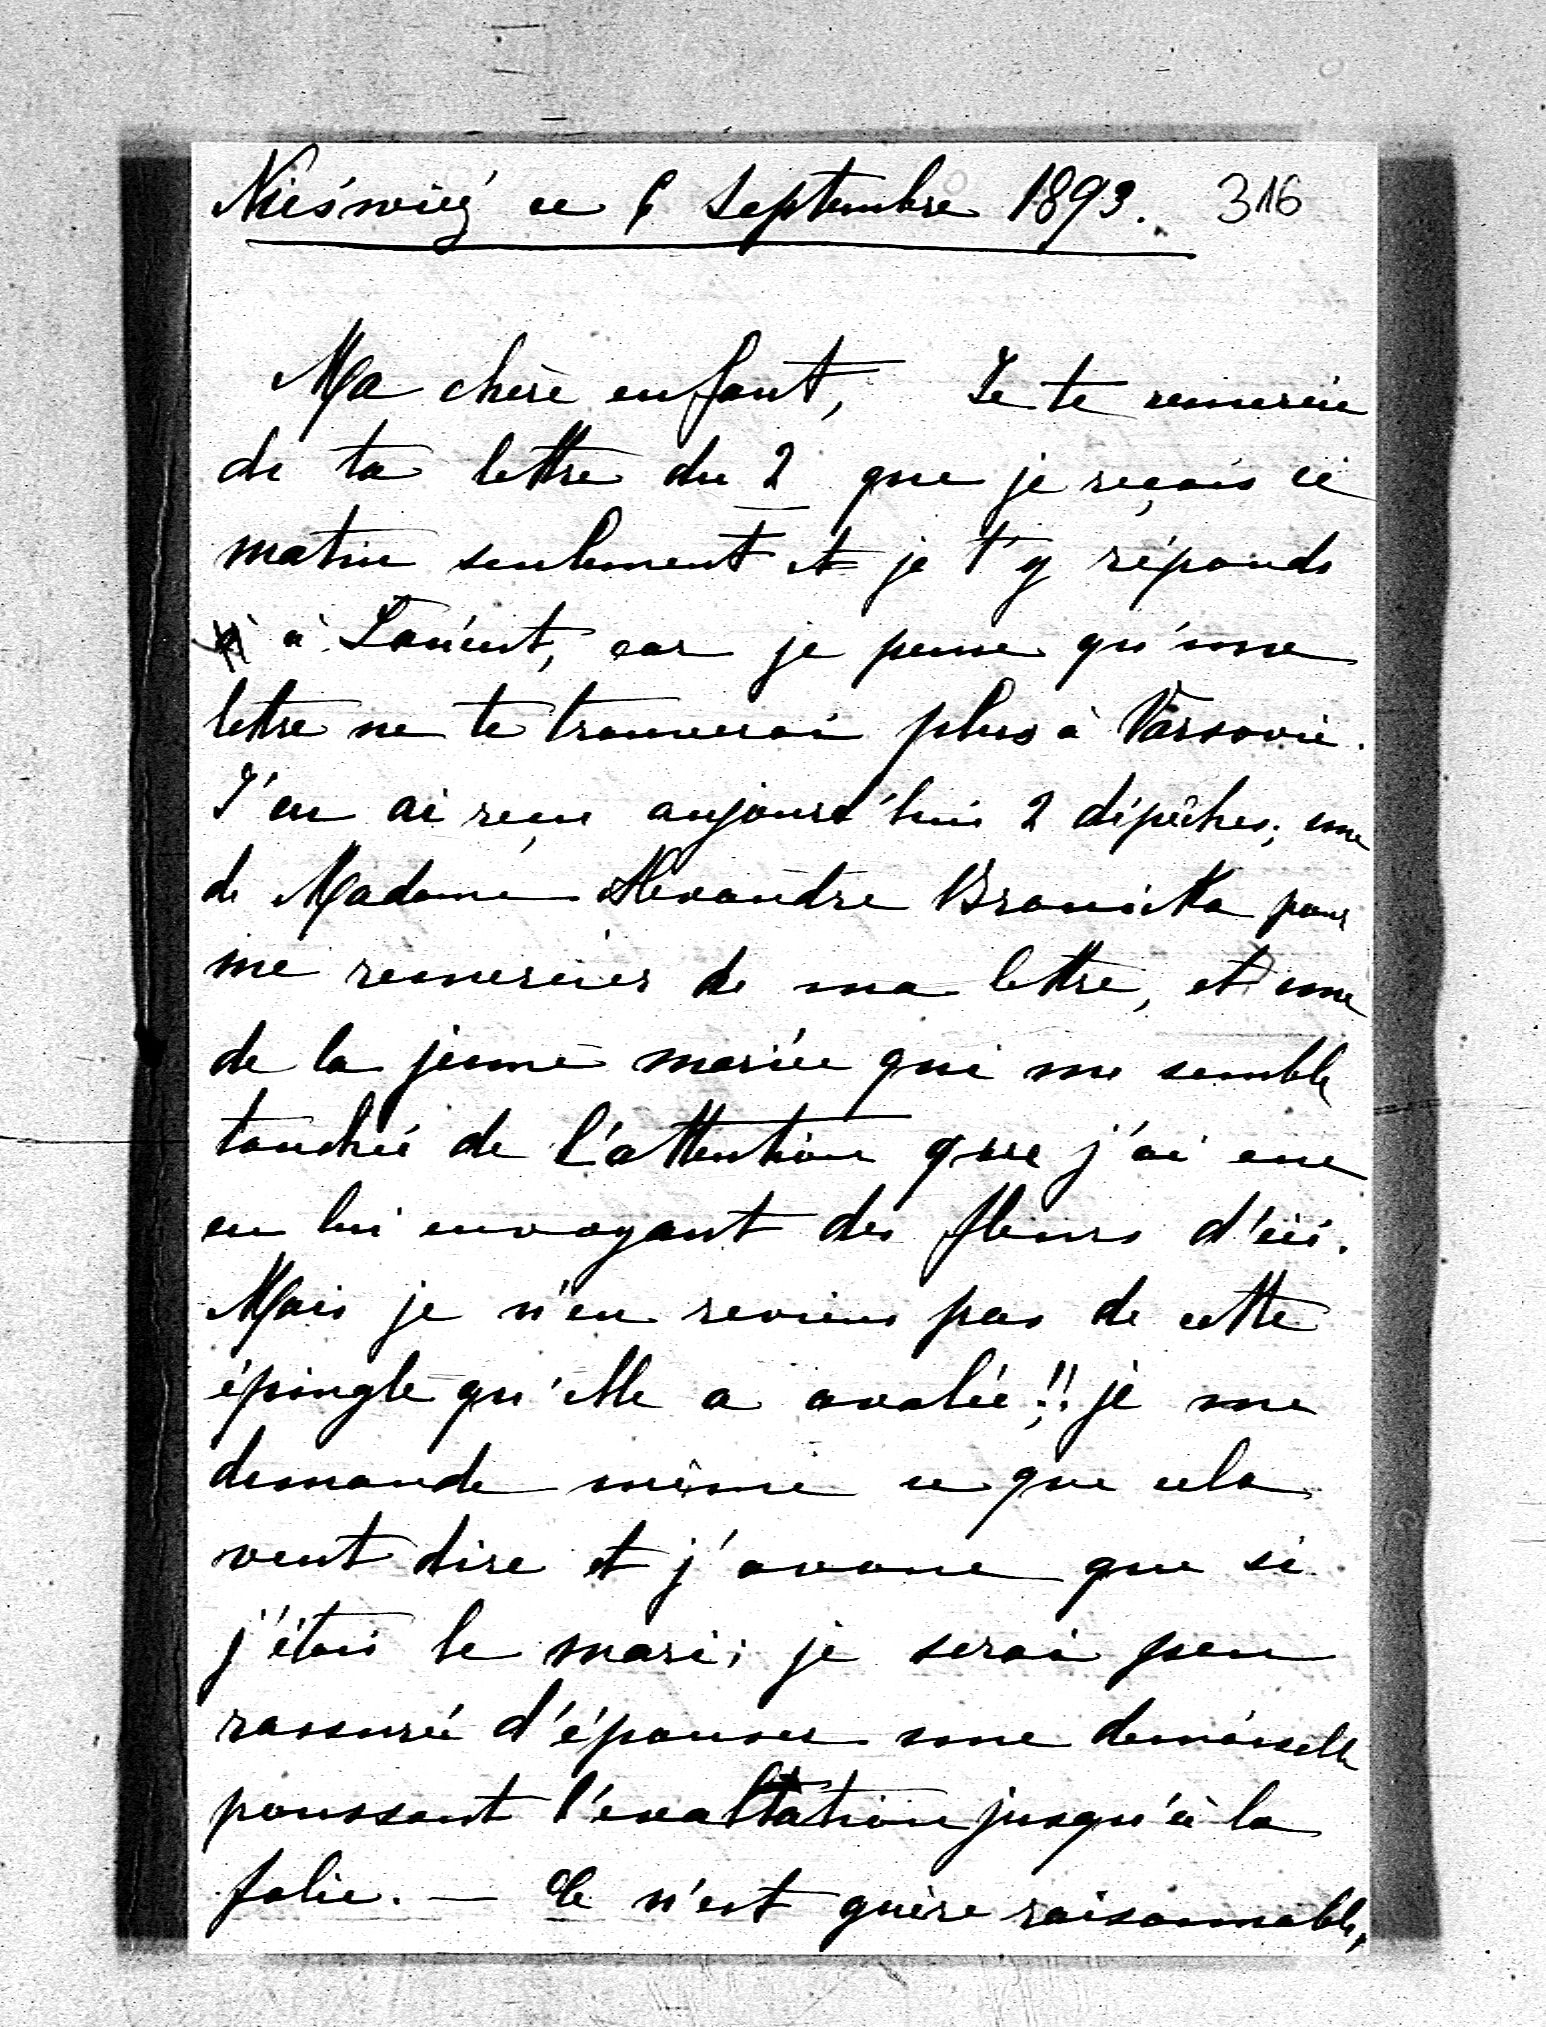 Nieśwież ce 6 Septembre 1893. 316
Ma chère enfant, Je te remercie
de ta lettre du 2 que je reçois ce
matin seulement et je t'y réponds
à Łańcut, car je pense qu'une
lettre ne te trouverai plus à Varsovie.
J'en ai reçu aujourd'hui 2 dépêches; une
de Madame Alexandre Branicka pour
me remercier de ma lettre, et une
de la jeune mariée qui me semble
touchée de l'attention que j'ai eue
en lui envoyant des fleurs d'ici.
Mais je n'en reviens pas de cette
épingle qu'elle a avalée!! je me
demande même ce que cela
veut dire et j'avoue que si
j'étais le mari; je serai peu
rassuré d'épouser une demoiselle
poussant l'exaltation jusqu'à la
folie. — Ce n'est guère raisonnable,